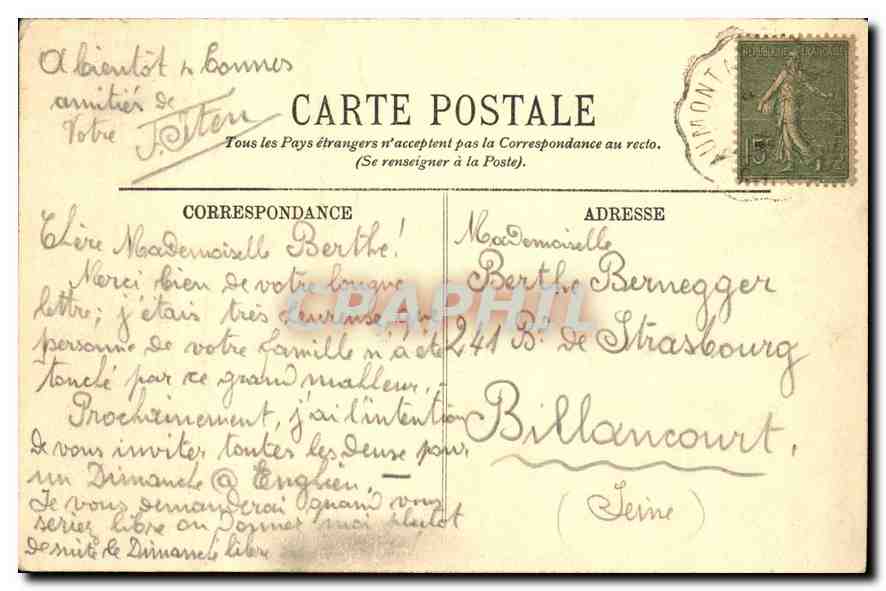 A bientôt & bonnes
amitiés de
Votre J. Iten
CARTE POSTALE
Tous les Pays étrangers n'acceptent pas la Correspondance au recto.
(Se renseigner à la Poste).
REPUBLIQUE FRANÇAISE
15c
AUMONT
CORRESPONDANCE
Chère Mademoiselle Berthe!
Merci bien de votre longue
lettre; j'étais très heureuse que
personne de votre famille n'a été
touché par ce grand malheur. -
Prochainement, j'ai l'intention
de vous inviter toutes les deuse pour
un Dimanche @ Enghien. —
Je vous demanderai quand vous
seriez libre ou donnez moi plutôt
de suite le Dimanche libre
ADRESSE
Mademoiselle
Berthe Bernegger
241 Bd. de Strasbourg
Billancourt.
(Seine)
CPAPHIL